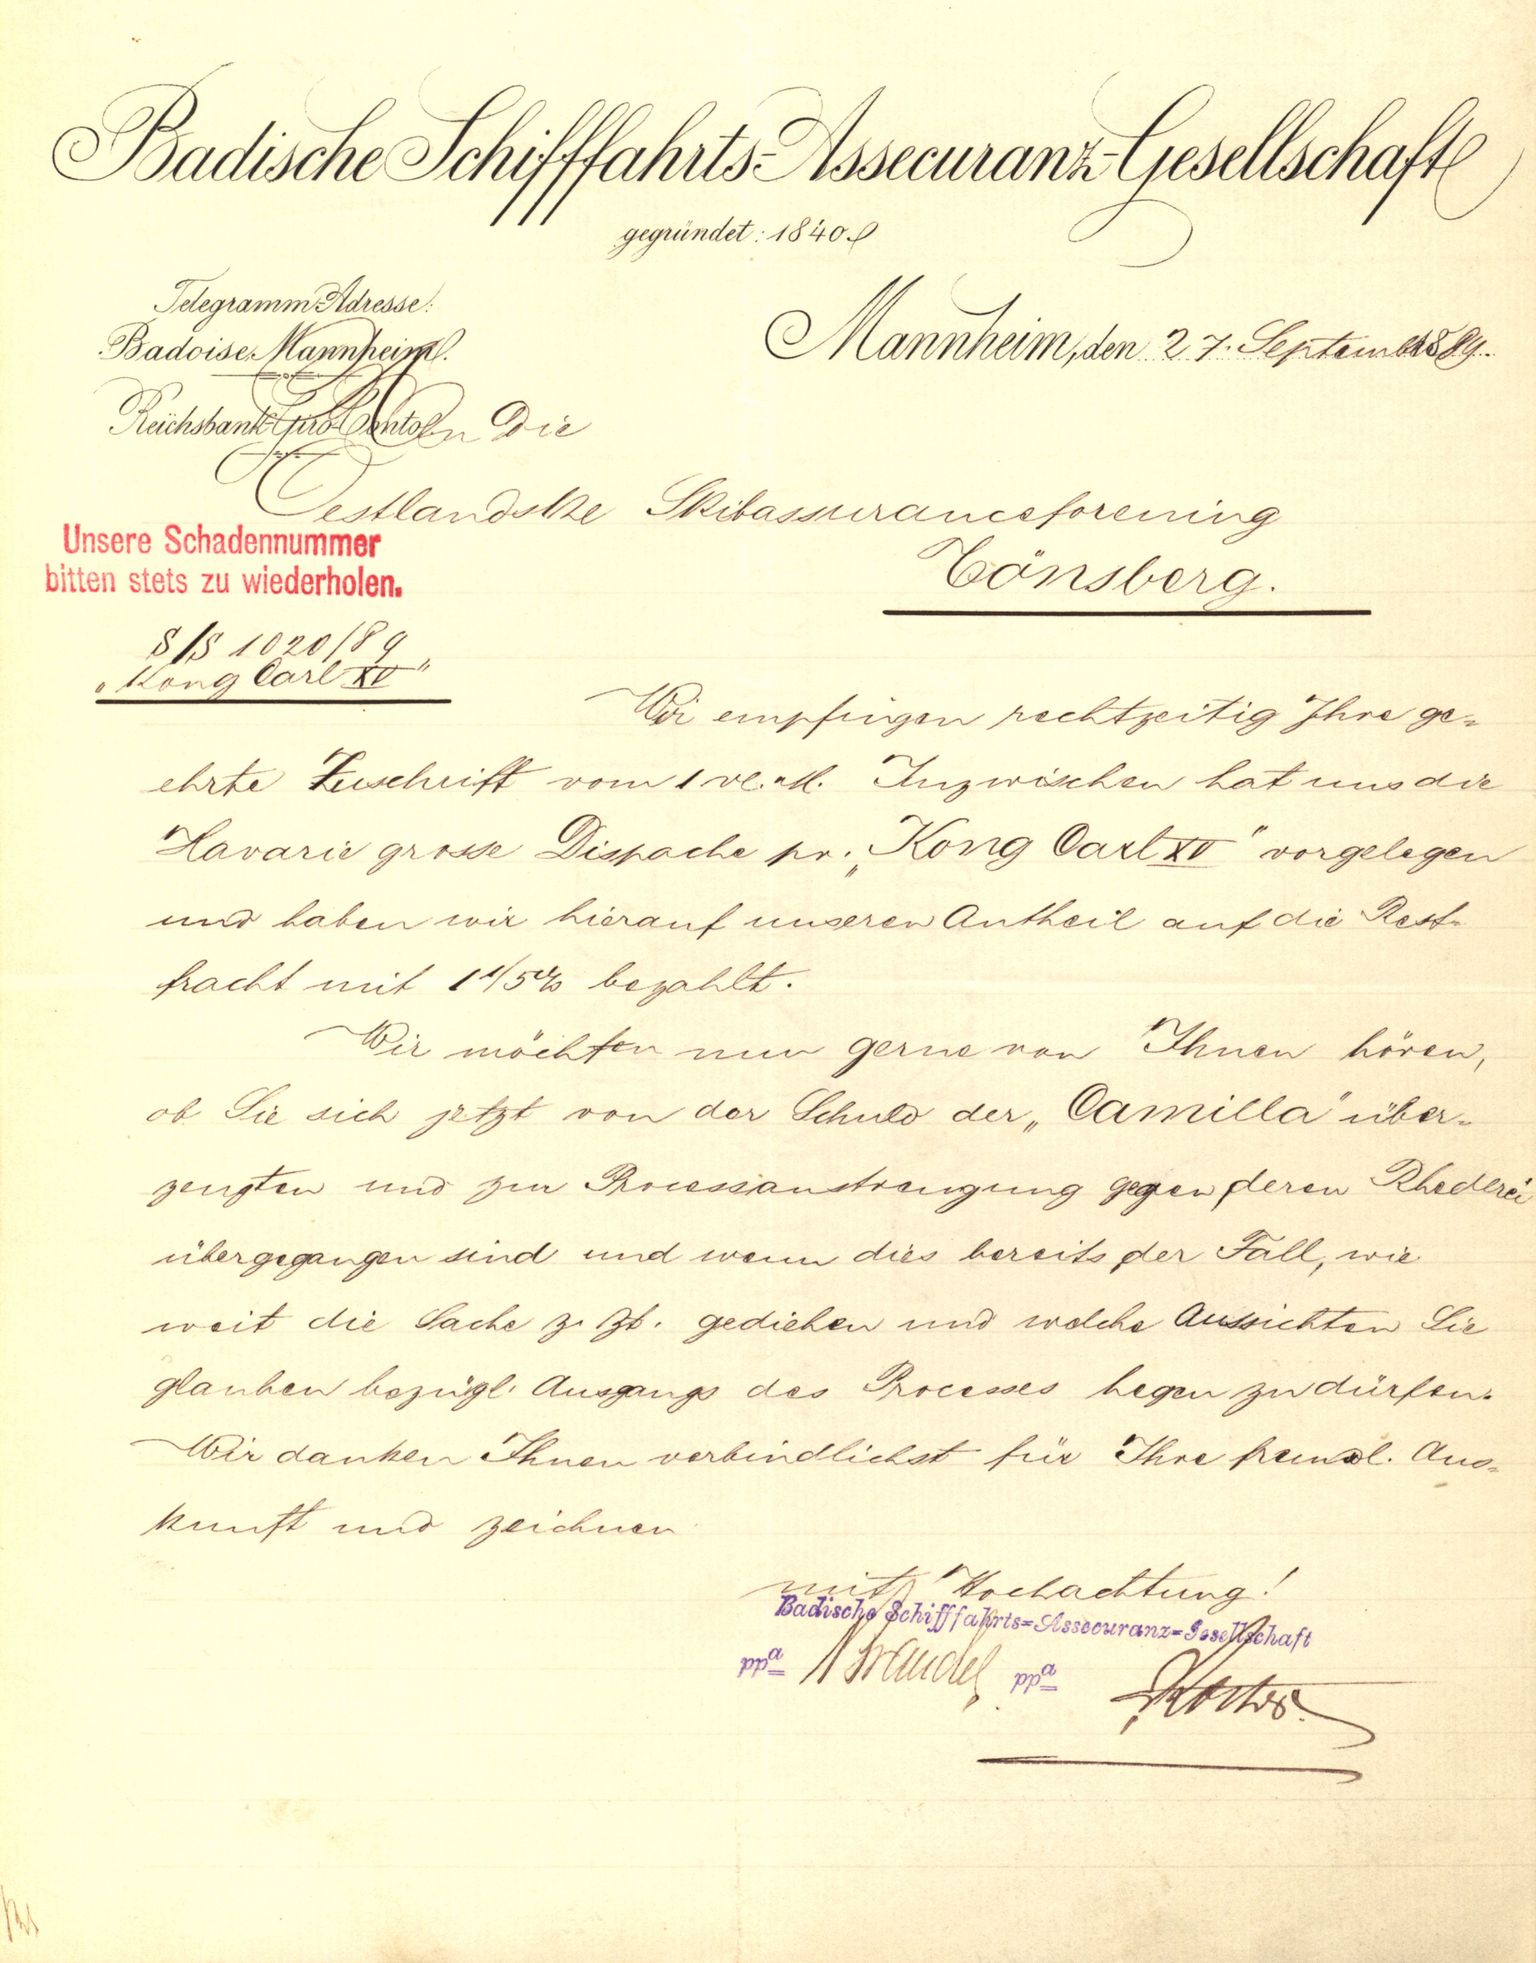 Badische Schifffahrts-Assecuranz-Gesellschaft
gegründet: 1840.
Telegramm-Adresse:
Badoise Mannheim.
Mannheim, den 27. September 1889.
Reichsbank Giro Conto
An die
Oestlandske Skibassuranceforening
Tönsberg.
Unsere Schadennummer
bitten stets zu wiederholen.
S/S 1020/89
"Kong Carl XV"
Wir empfingen rechtzeitig Ihre ge-
ehrte Zuschrift vom 1 Inzwischen hat uns die
Havarie grosse Dispache pr. "Kong Carl XV" vorgelegen
und haben wir hierauf unseren Antheil auf die Rest-
fracht mit bezahlt.
Wir möchten nun gerne von Ihnen hören,
ob Sie sich jetzt von der Schuld der "Camilla" über-
zeugten und zur Processanstrengung gegen deren Rhederei
übergegangen sind und wenn dies bereits der Fall, wie
weit die Sache z. Zt. gediehen und welche Aussichten Sie
glauben bezügl. Ausgangs des Processes hegen zu dürfen.
Wir danken Ihnen verbindlichst für Ihre freundl. Aus-
kunft und zeichnen
mit Hochachtung!
Badische Schifffahrts=Assecuranz=Gesellschaft
ppa ppa